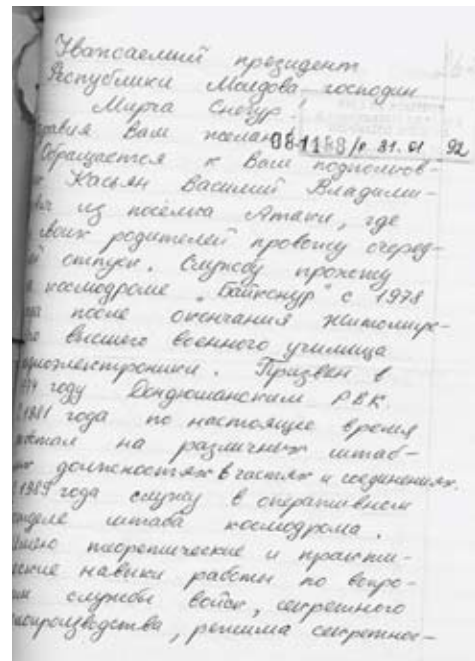 Уважаемый президент
Республики Молдова господин
Мирча Снегур!
Здравия Вам желаю!
08-1188/с 31.01 92
Обращается к Вам подполков-
Касьян Василий Владими-
из посёлка Атаки, где
своих родителей провожу очеред-
отпуск. Службу прохожу
космодроме „Байконур" с 1978
года после окончания Житомирс-
высшего военного училища
радиоэлектроники. Призван в
году Дондюшанским РВК.
1981 года по настоящее время
работал на различных штаб-
должностях в частях и соединениях.
1989 года служу в оперативном
отделе штаба космодрома.
Имею теоретические и практи-
ческие навыки работы по вопро-
службы войск, секретного
делопроизводства, режима секретнос-